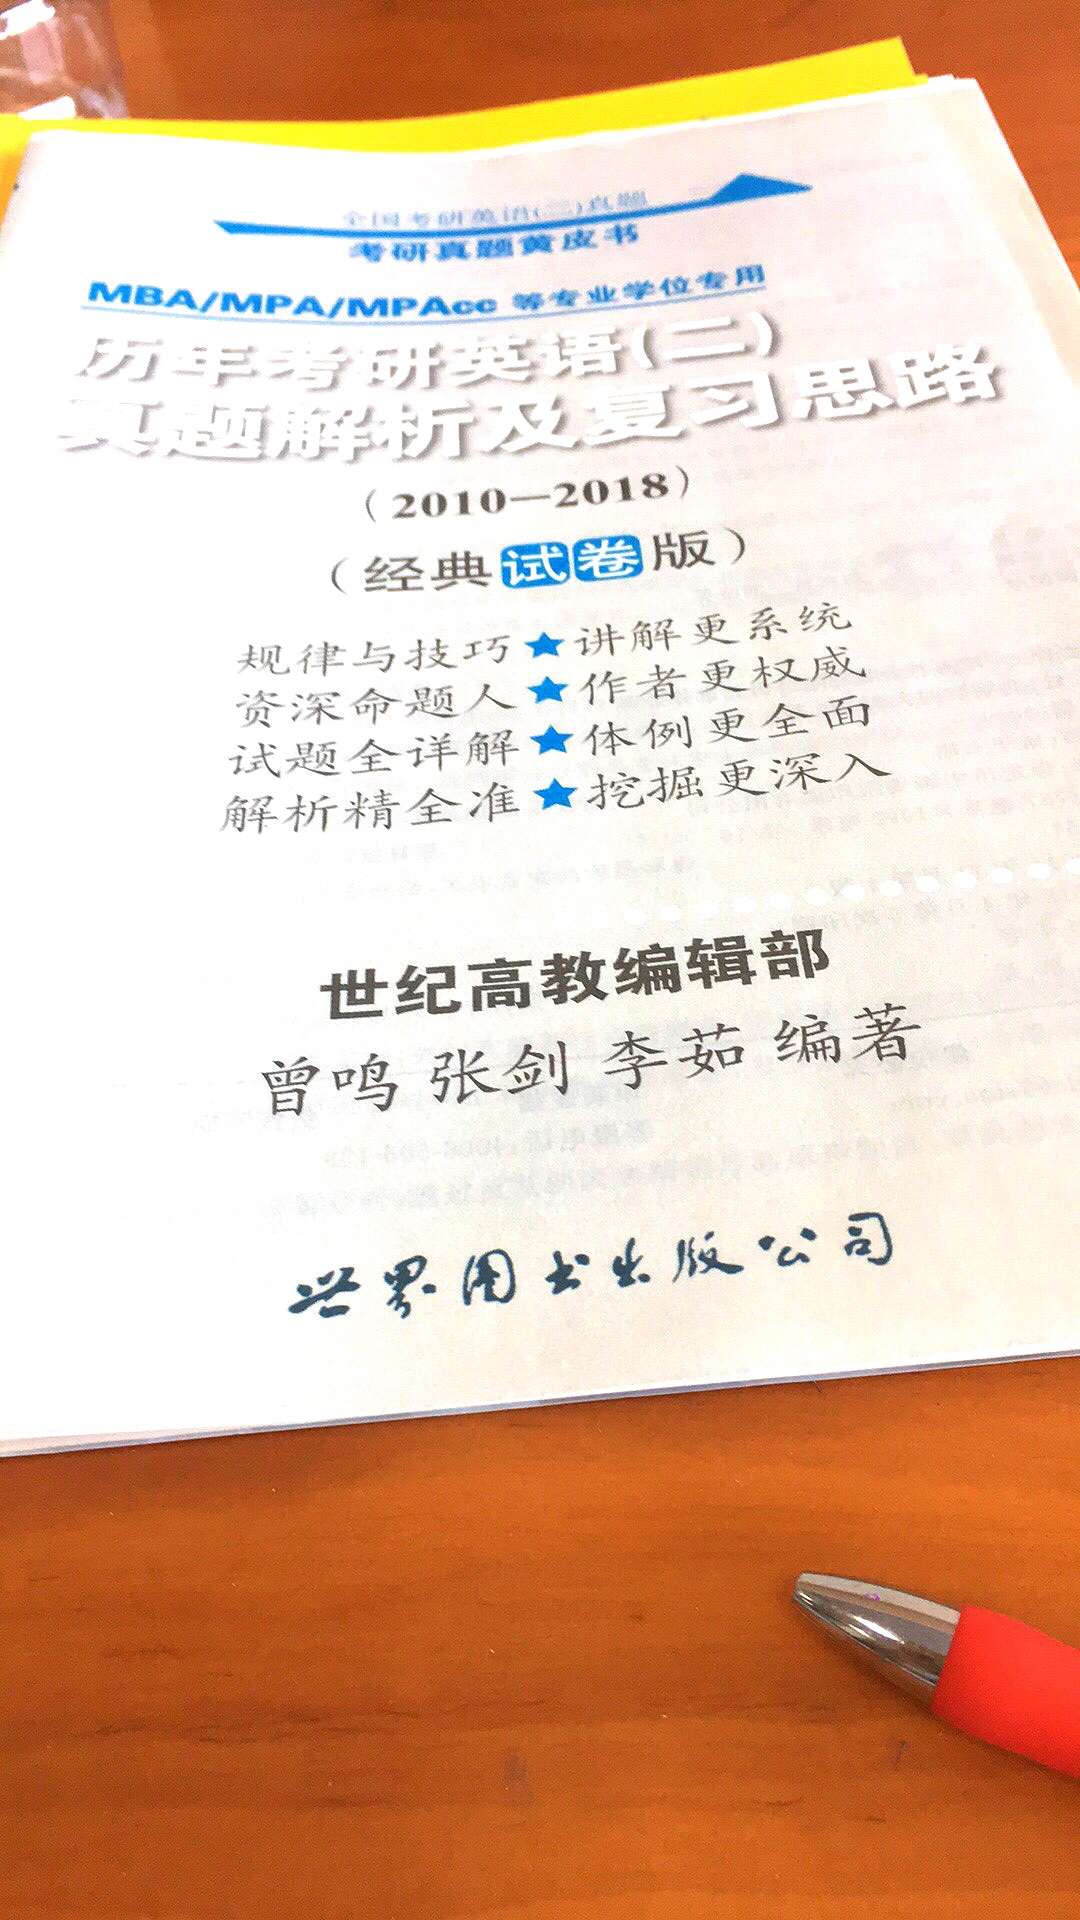 全国考研英语(二)真题
考研真题黄皮书
MBA/MPA/MPAcc 等专业学位专用
历年考研英语(二)
真题解析及复习思路
(2010—2018)
(经典试卷版)
规律与技巧★讲解更系统
资深命题人★作者更权威
试题全详解★体例更全面
解析精全准★挖掘更深入
世纪高教编辑部
曾鸣 张剑 李茹 编著
世界图书出版公司